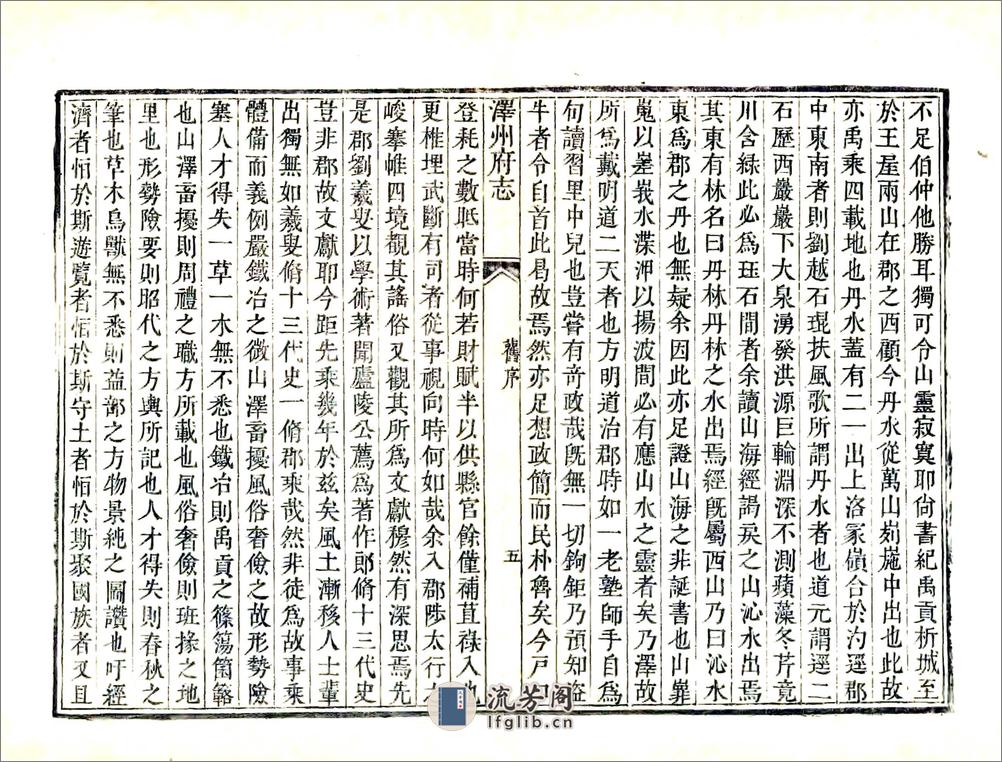 不足伯仲他勝耳獨可令山靈寂寞耶尙書紀禹貢析城至
於王屋兩山在郡之西顧今丹水從萬山峛崺中出也此故
亦禹乘四載地也丹水蓋有二一出上洛冢嶺合於汋逕郡
中東南者則劉越石琨扶風歌所謂丹水者也道元謂逕二
石歷西巖巖下大泉湧發洪源巨輪淵深不測蘋藻冬芹竟
川含綠此必爲珏石間者余讀山海經謁戾之山沁水出焉
其東有林名曰丹林丹林之水出焉經旣屬西山乃曰沁水
東爲郡之丹也無疑余因此亦足證山海之非誕書也山㠑
嵬以嶪峩水渫㳌以揚波間必有應山水之靈者矣乃澤故
所爲戴明道二天者也方明道治郡時如一老塾師手自爲
句讀習里中兒也豈嘗有奇政哉旣無一切鉤鉅乃預知盜
牛者令自首此曷故焉然亦足想政簡而民朴魯矣今戸口
澤州府志
舊序
五
登耗之數眡當時何若財賦半以供縣官餘僅補苴祿入也
更椎埋武斷有司者從事視向時何如哉余入郡陟太行
峻搴帷四境觀其謠俗又觀其所爲文獻穆然有深思焉先
是郡劉羲叟以學術著聞廬陵公薦爲著作郎脩十三代史
豈非郡故文獻耶今距先乘幾年於茲矣風土漸移人士輩
出獨無如羲叟脩十三代史一脩郡乘哉然非徒爲故事乘
體備而義例嚴鐵冶之微山澤畜擾風俗奢儉之故形勢險
塞人才得失一草一木無不悉也鐵冶則禹貢之篠簜箘簵
也山澤畜擾則周禮之職方所載也風俗奢儉則班掾之地
里也形勢險要則昭代之方輿所記也人才得失則春秋之
筆也草木鳥獸無不悉則益部之方物景純之圖讚也吁經
濟者怕於斯遊覽者怕於斯守土者怕於斯聚國族者又且
流芳阁
lfglib.cn